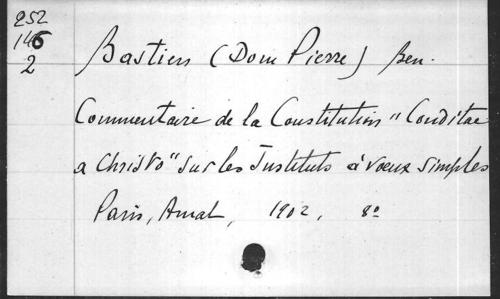 252
146
2
Bastien (Dom Pierre) Ben.
Commentaire de la Constitution "Conditae
a Christo" sur les Instituts à vœux simples
Paris, Amat, 1902, 8º